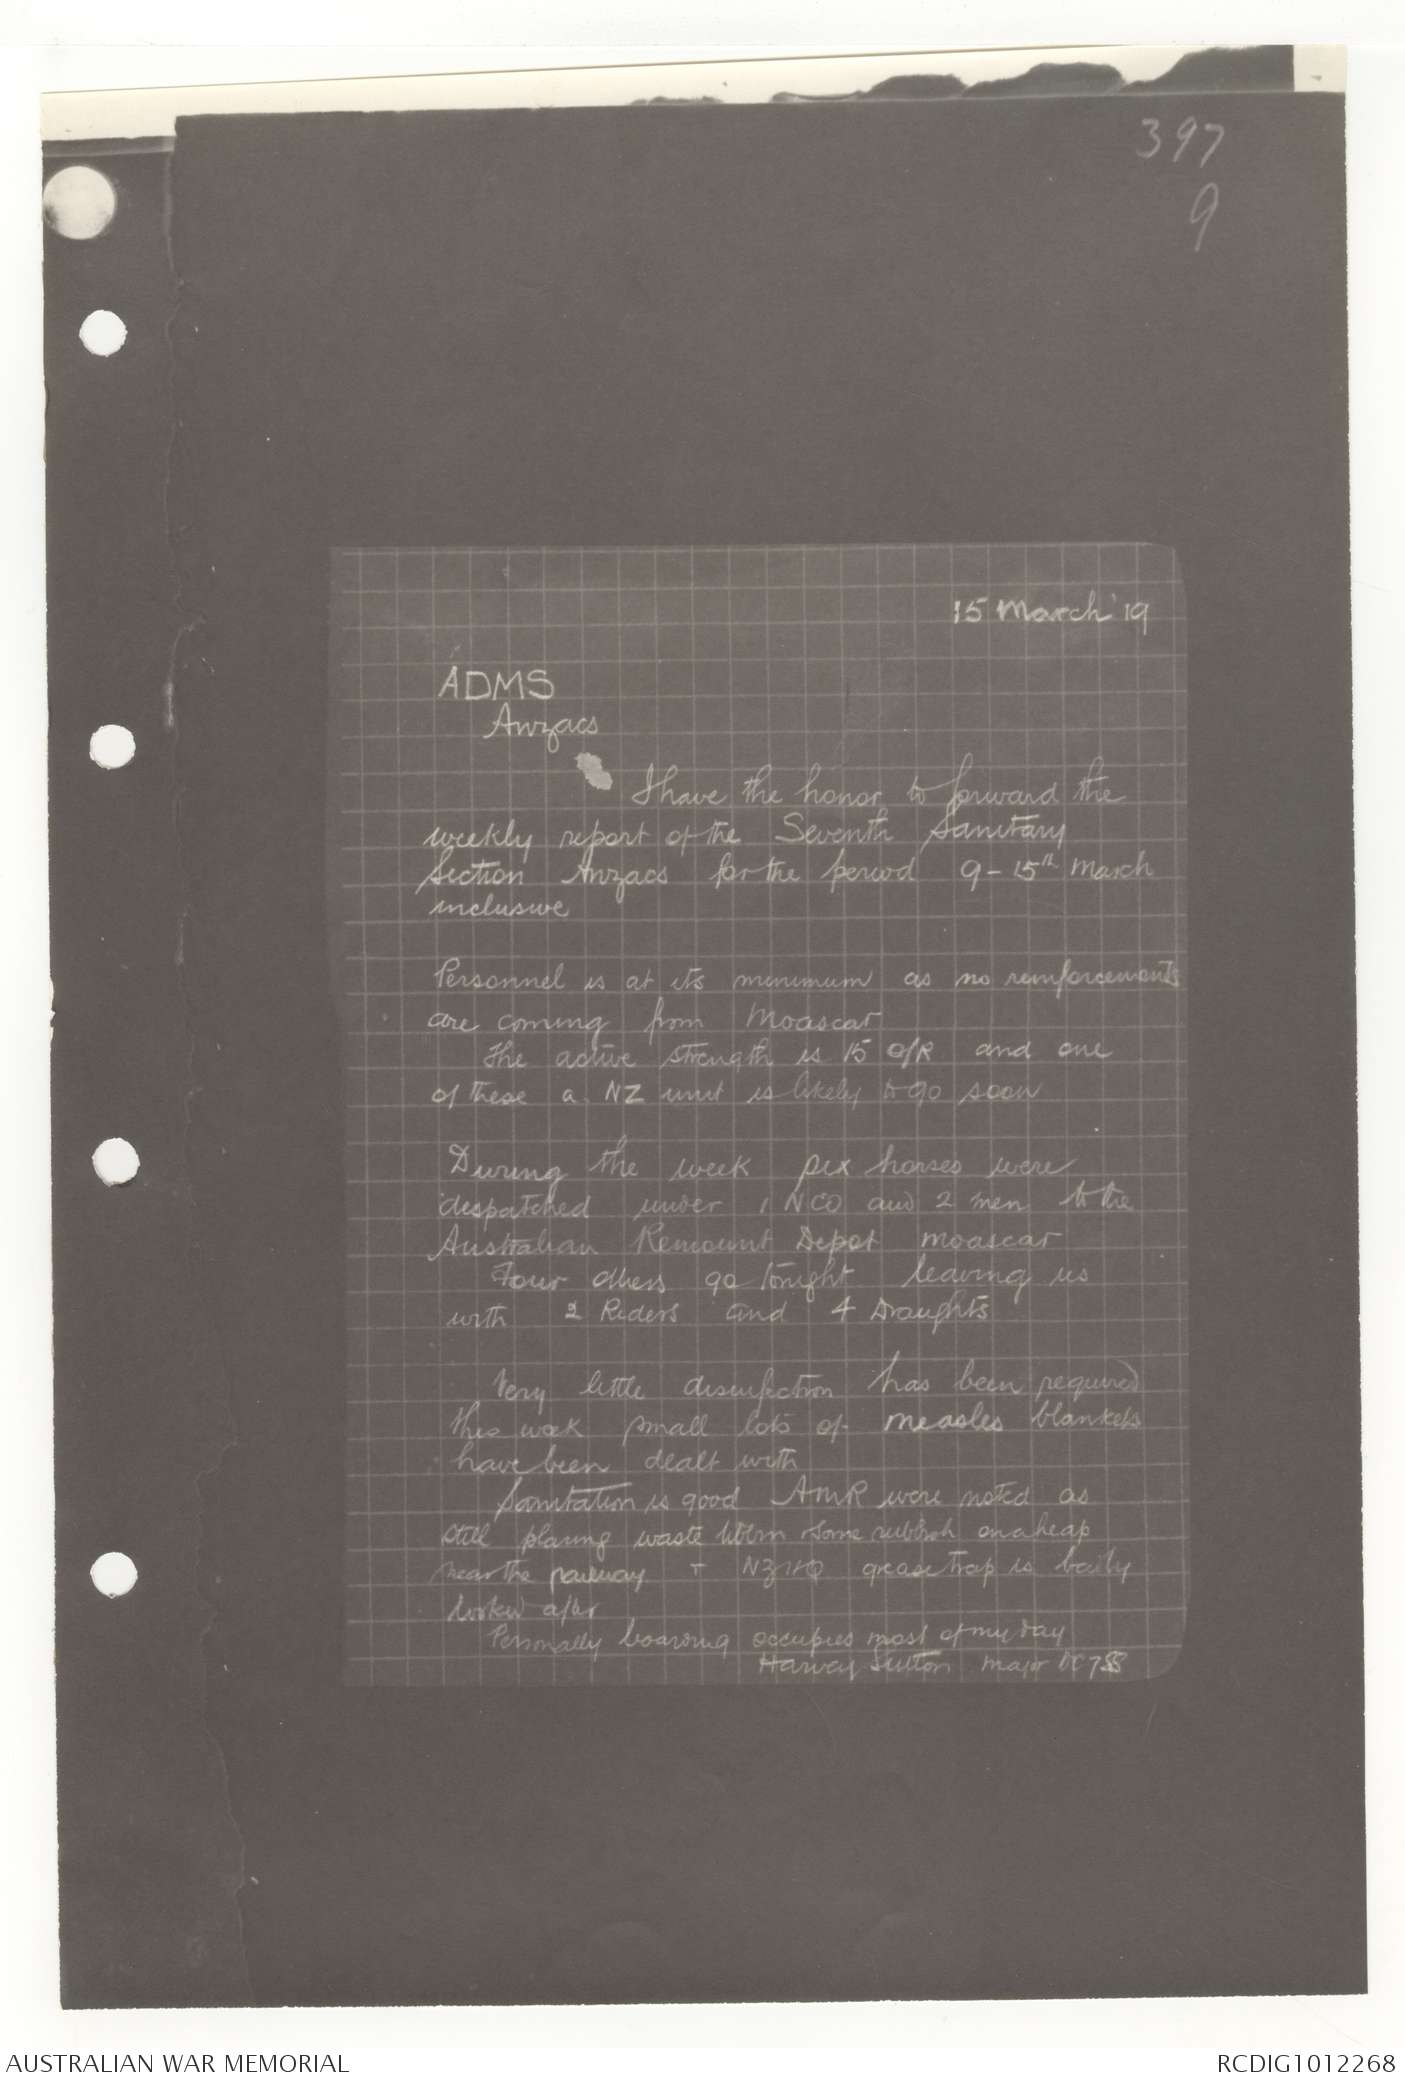 397
9
15 March '19
ADMS
Anzacs
I have the honor to forward the
weekly report of the Seventh Sanitary
Section Anzacs for the period 9-15th March
inclusive
Personnel is at its minimum as no reinforcements
are coming from Moascar
The active strength is 15 O/R and one
of these a NZ unit is likely to go soon
During the week six horses were
despatched under 1 NCO and 2 men to the
Australian Remount Depot Moascar
Four others go tonight leaving us
with 2 Riders and 4 Draughts
Very little disinfection has been required
this week small lots of measles blankets
have been dealt with
Sanitation is good AMR were noted as
still placing waste some rubbish on a heap
near the railway + NZ HQ grease trap is badly
looked after
Personally boarding occupies most of my day
Harvey Sutton Major OC 7SS
AUSTRALIAN WAR MEMORIAL
RCDIG1012268